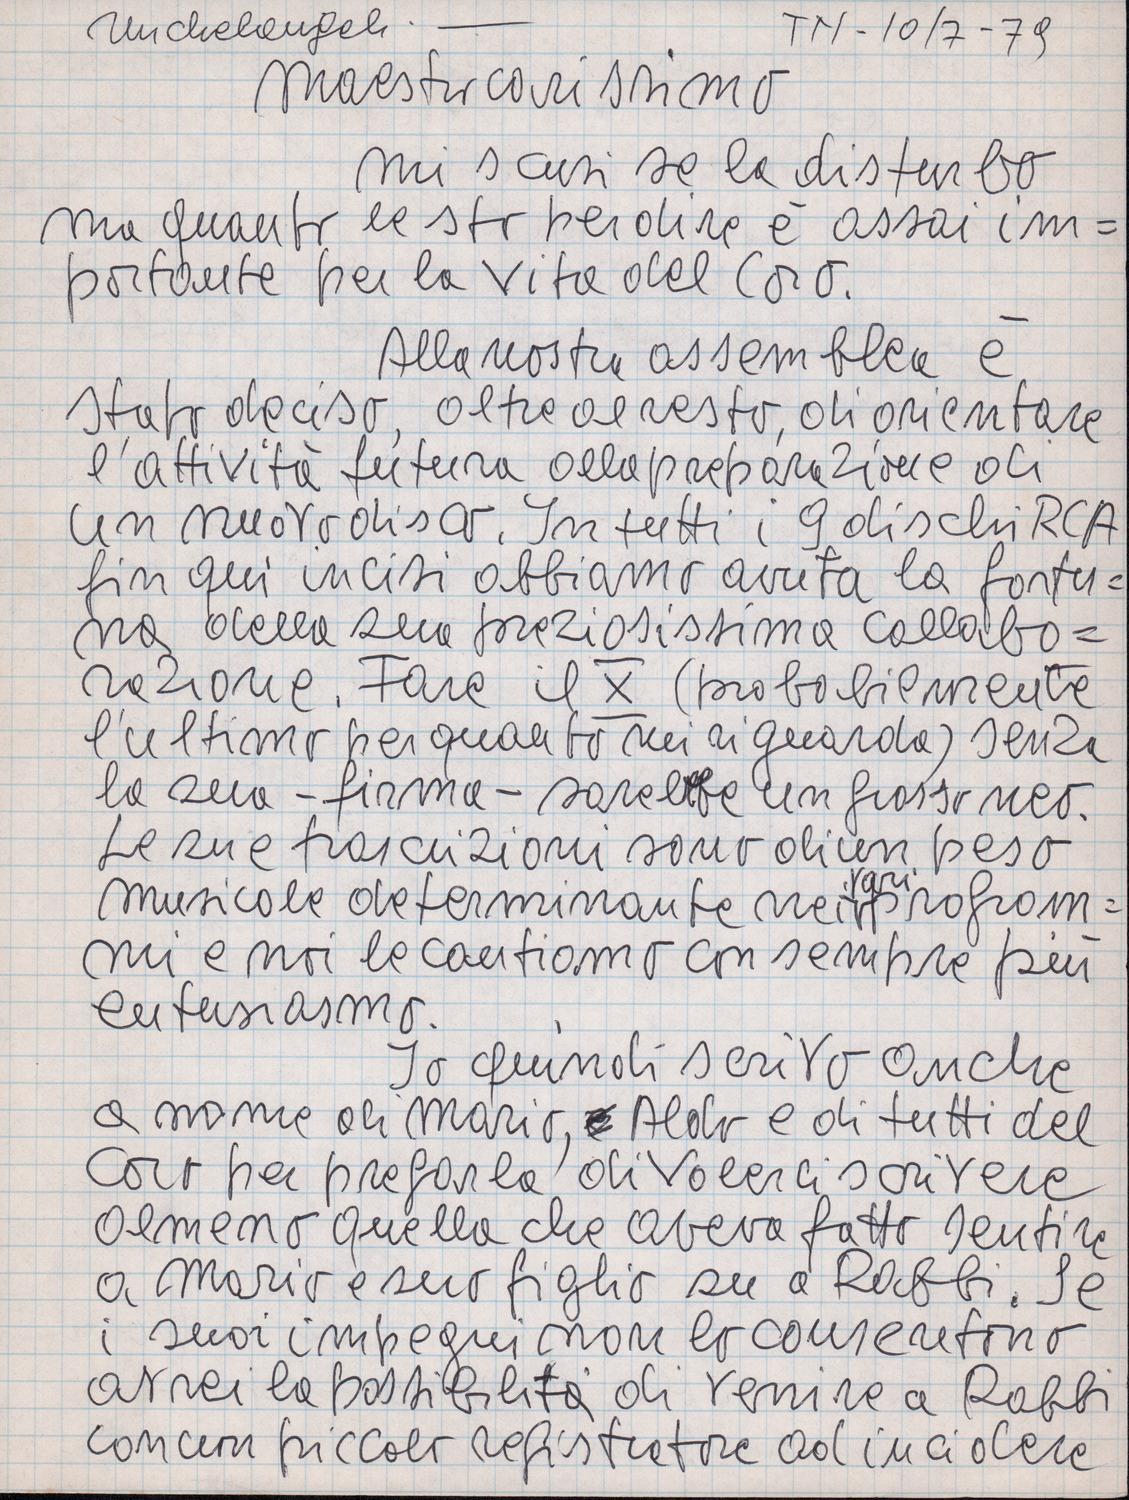 Michelangeli. —
TN-10/7-79
Maestro carissimo
mi scusi se la disturbo
ma quanto le sto per dire è assai im=
portante per la vita del Coro.
Alla nostra assemblea è
stato deciso, oltre al resto, di orientare
l'attività futura alla preparazione di
un nuovo disco. In tutti i 9 dischi RCA
fin qui incisi abbiamo avuta la fortu=
na della sua preziosissima collabo=
razione. Fare il X (probabilmente
l'ultimo per quanto mi riguarda) senza
la sua - firma - sarebbe un grosso neo.
Le sue trascrizioni sono di un peso
musicale determinante nei vari program=
mi e noi le cantiamo con sempre più
entusiasmo.
Io quindi scrivo anche
a nome di Mario, Aldo e di tutti del
Coro per pregarla di volerci scrivere
almeno quella che aveva fatto sentire
a Mario e suo figlio su a Rabbi. Se
i suoi impegni non lo consentono
avrei la possibilità di venire a Rabbi
con un piccolo registratore ad incidere